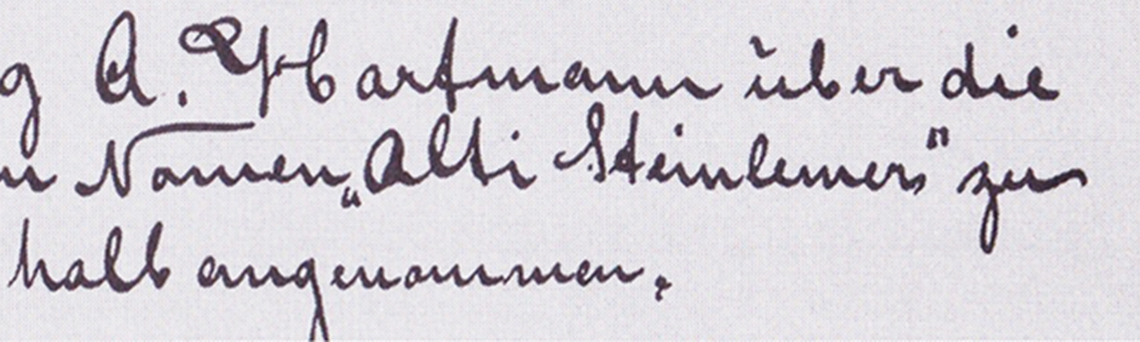 g A. Hartmann über die
n Namen „Alti Steinlemer" zu
halb angenommen.